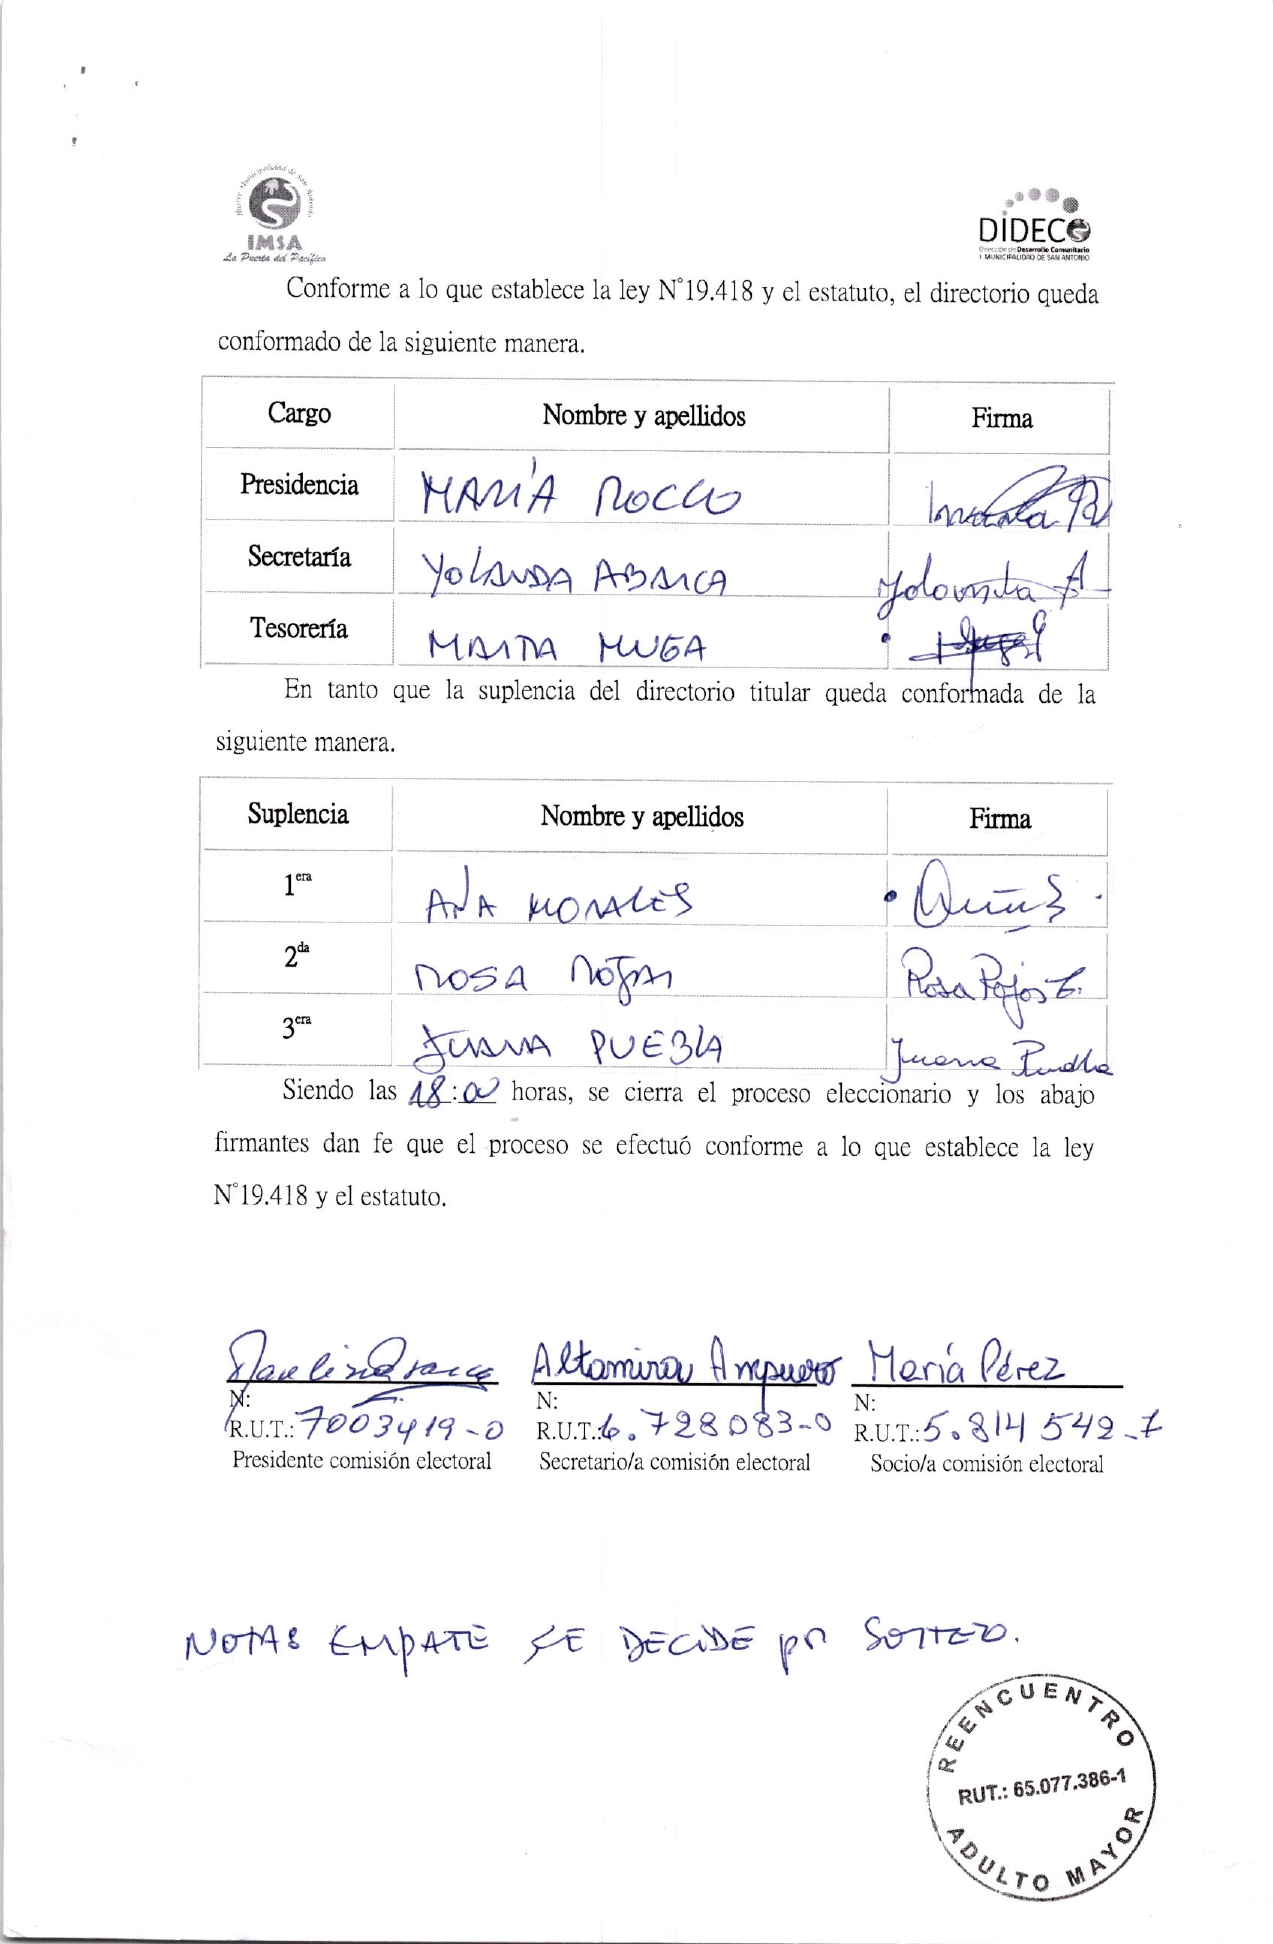 Ilustre Municipalidad de San Antonio
IMSA
La Puerta del Pacífico
DIDECO
Dirección de Desarrollo Comunitario
I. MUNICIPALIDAD DE SAN ANTONIO
Conforme a lo que establece la ley N°19.418 y el estatuto, el directorio queda
conformado de la siguiente manera.
Cargo Nombre y apellidos Firma
Presidencia MARÍA ROCCO
Secretaría YOLANDA ABARCA Yolanda A
Tesorería MARTA MUGA
En tanto que la suplencia del directorio titular queda conformada de la
siguiente manera.
Suplencia Nombre y apellidos Firma
1era ANA MORALES
2da ROSA ROJAS Rosa Rojas
3era JUANA PUEBLA Juana Puebla
Siendo las 18:00 horas, se cierra el proceso eleccionario y los abajo
firmantes dan fe que el proceso se efectuó conforme a lo que establece la ley
N°19.418 y el estatuto.
Altamira Ampuero María Pérez
N: N: N:
R.U.T.: 7003419-0 R.U.T.: 6.728083-0 R.U.T.: 5.814542-7
Presidente comisión electoral Secretario/a comisión electoral Socio/a comisión electoral
NOTAS EMPATE SE DECIDE por SORTEO.
REENCUENTRO
RUT.: 65.077.386-1
ADULTO MAYOR